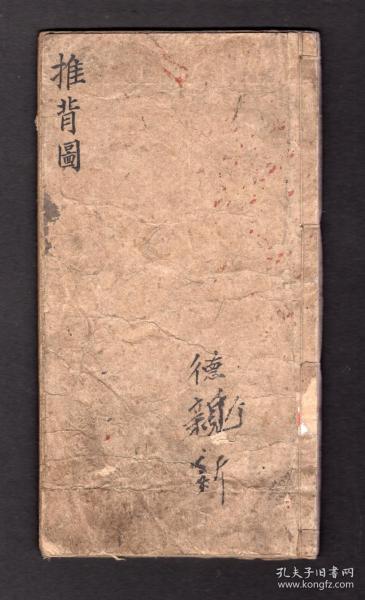 推背圖
德
孔夫子旧书网
www.kongfz.com